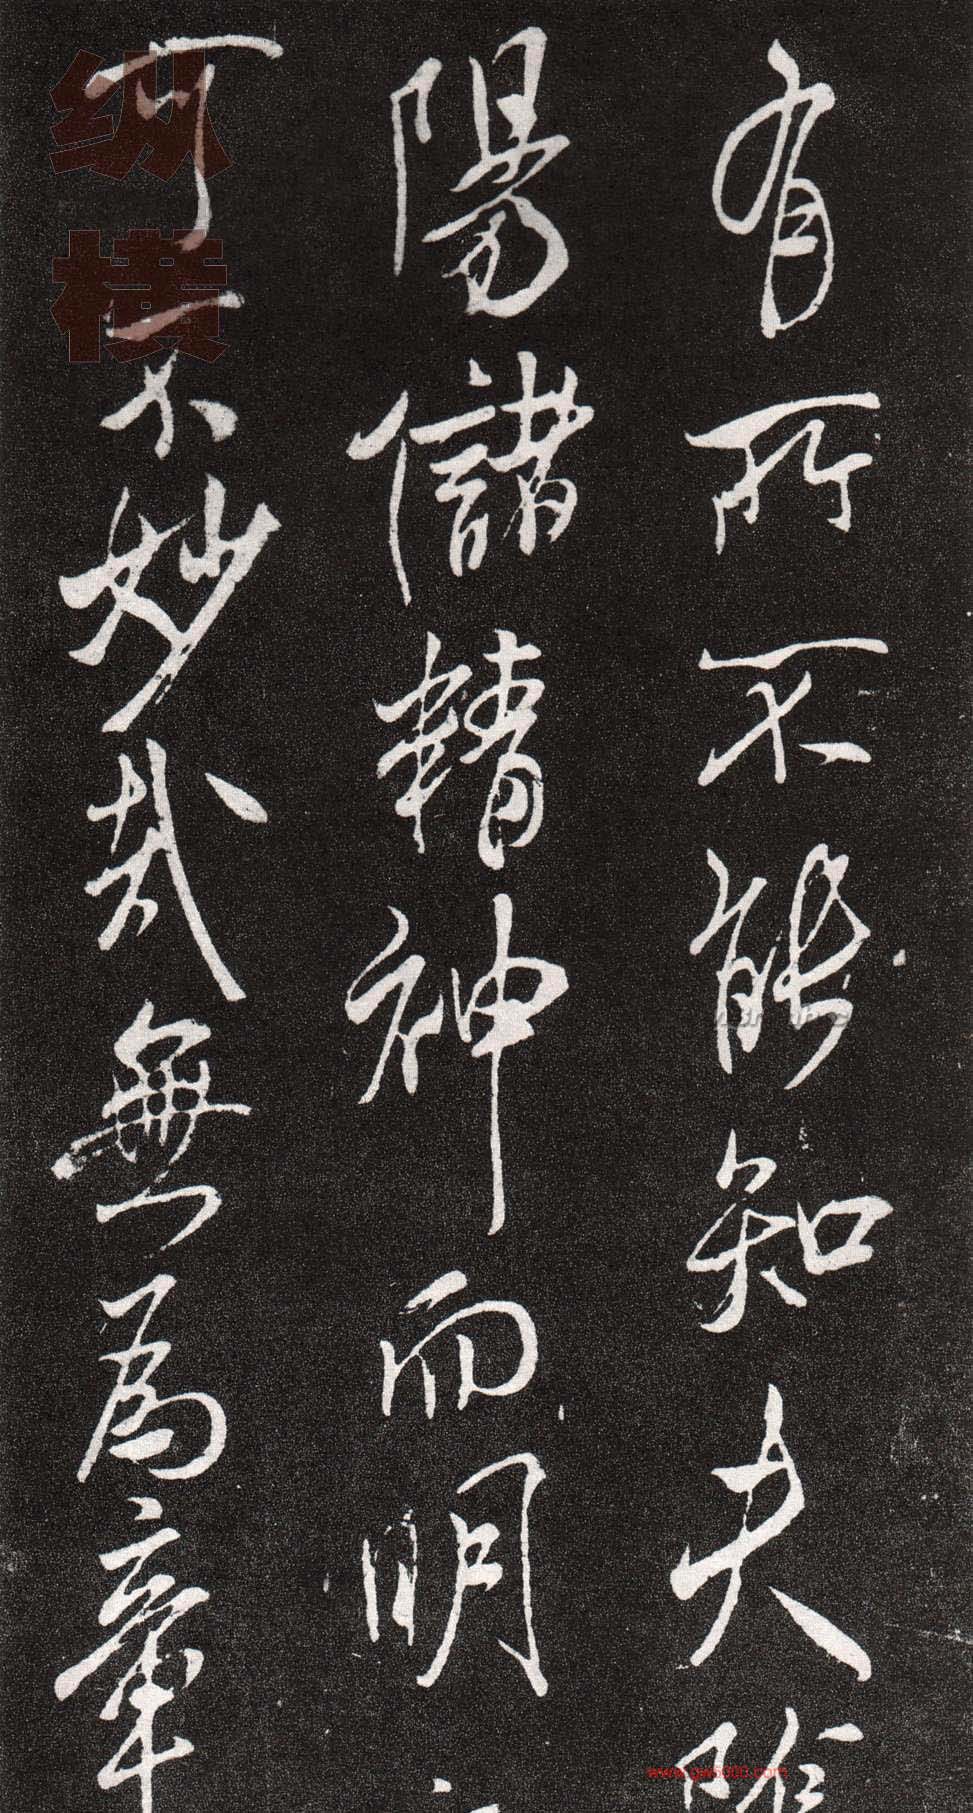 有所不能知夫陰
陽儲精神而明
可不妙哉無為章
纵
横